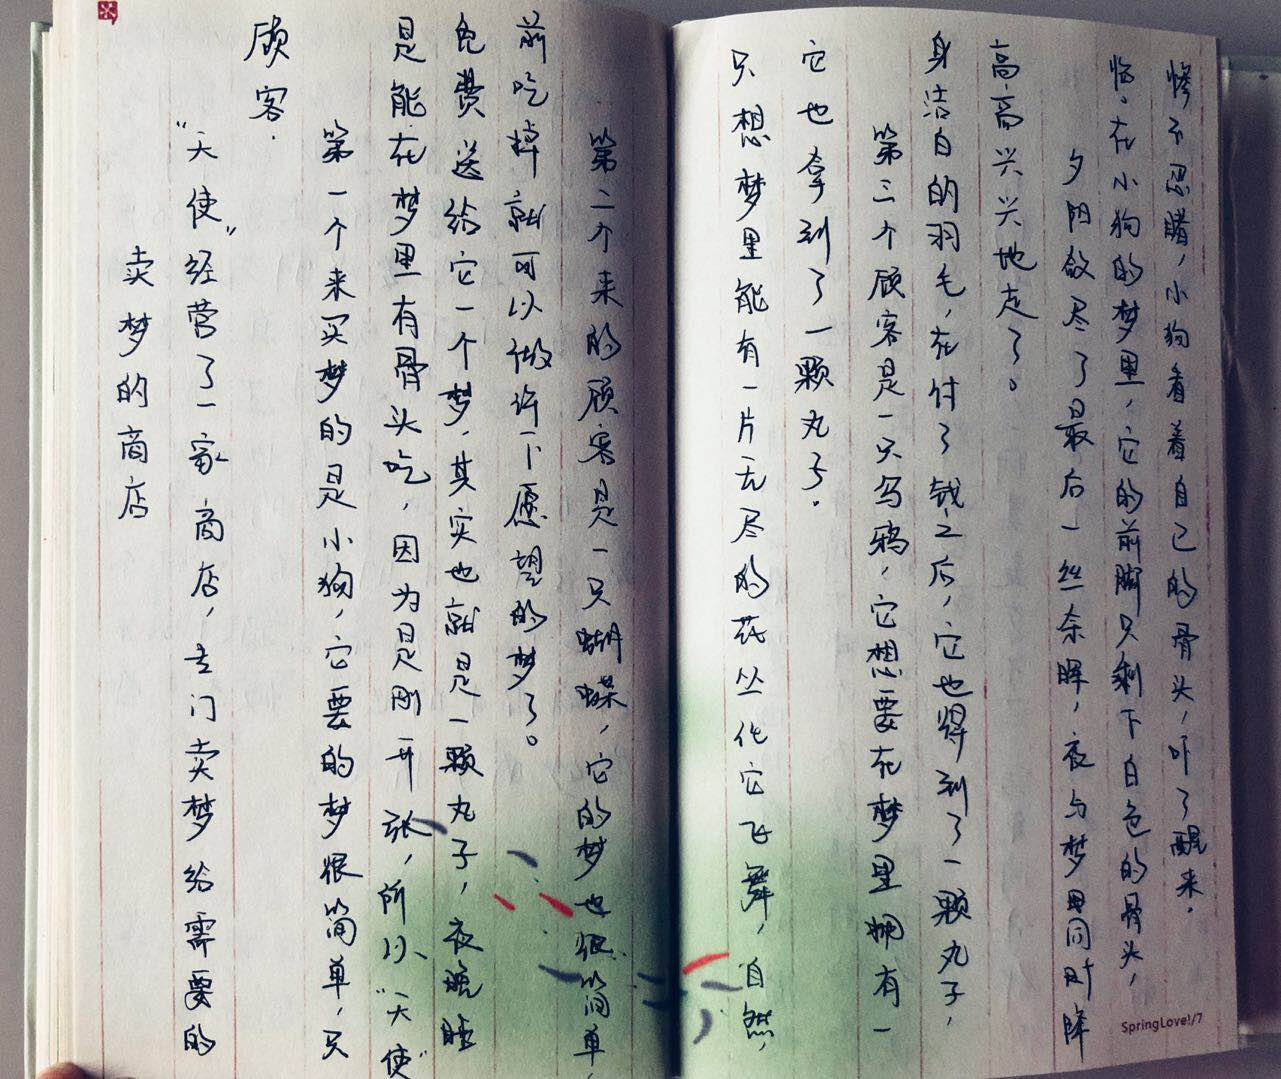 卖梦的商店
“天使”经营了一家商店，专门卖梦给需要的
顾客.
第一个来买梦的是小狗，它要的梦很简单，只
是能在梦里有骨头吃，因为是刚开张，所以“天使”
免费送给它一个梦.其实也就是一颗丸子，夜晚睡
前吃掉就可以做许下愿望的梦了。
第二个来的顾客是一只蝴蝶，它的梦也很简单，
只想梦里能有一片无尽的花丛化它飞舞，自然，
它也拿到了一颗丸子.
第三个顾客是一只乌鸦，它想要在梦里拥有一
身洁白的羽毛，在付了钱之后，它也得到了一颗丸子，
高高兴兴地走了。
夕阳敛尽了最后一丝余晖，夜与梦同时降
临.在小狗的梦里，它的前脚只剩下白色的骨头，
惨不忍睹，小狗看着自己的骨头，吓了醒来.
SpringLove!/7